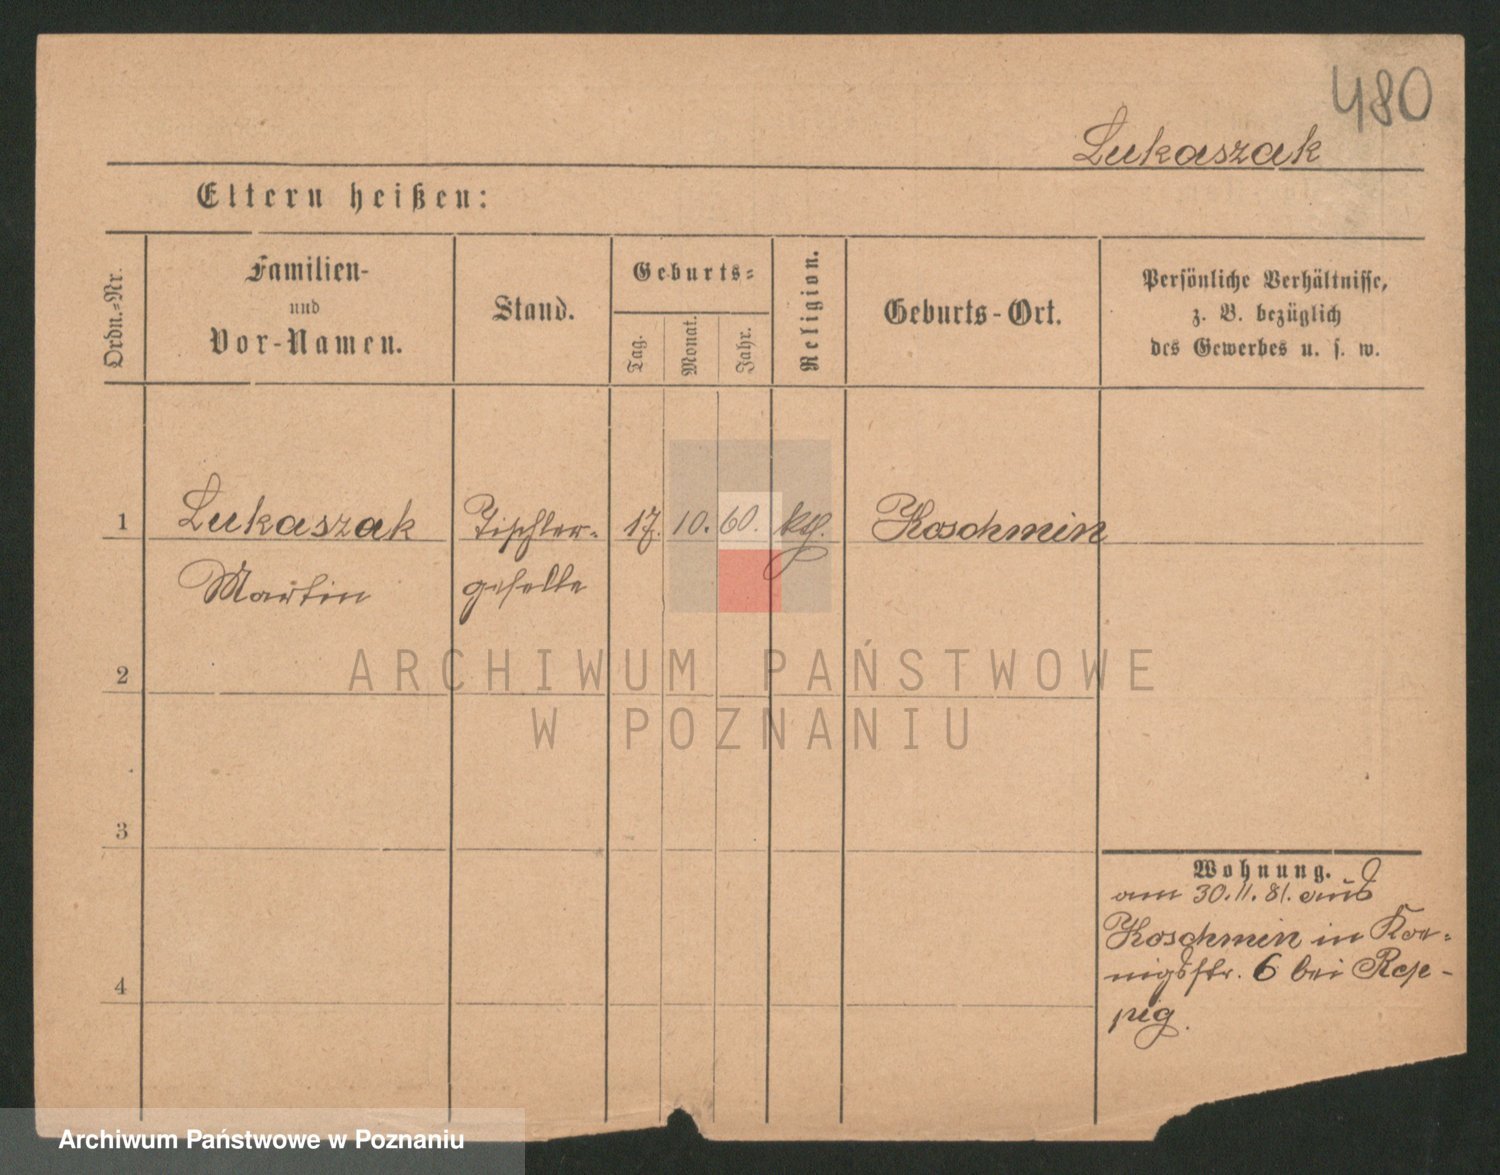 480
Lukaszak
Eltern heißen:
Ordn.-Nr.
Familien-
und
Vor-Namen.
Stand.
Geburts-
Tag.
Monat.
Jahr.
Religion.
Geburts-Ort.
Persönliche Verhältnisse,
z. B. bezüglich
des Gewerbes u. s. w.
1
Lukaszak
Martin
Tischler-
geselle
17.
10.
60.
kth.
Koschmin
2
3
4
Wohnung.
am 30.11.81. aus
Koschmin in Koe-
nigsstr. 6 bei Rep-
pig.
ARCHIWUM PAŃSTWOWE
W POZNANIU
Archiwum Państwowe w Poznaniu